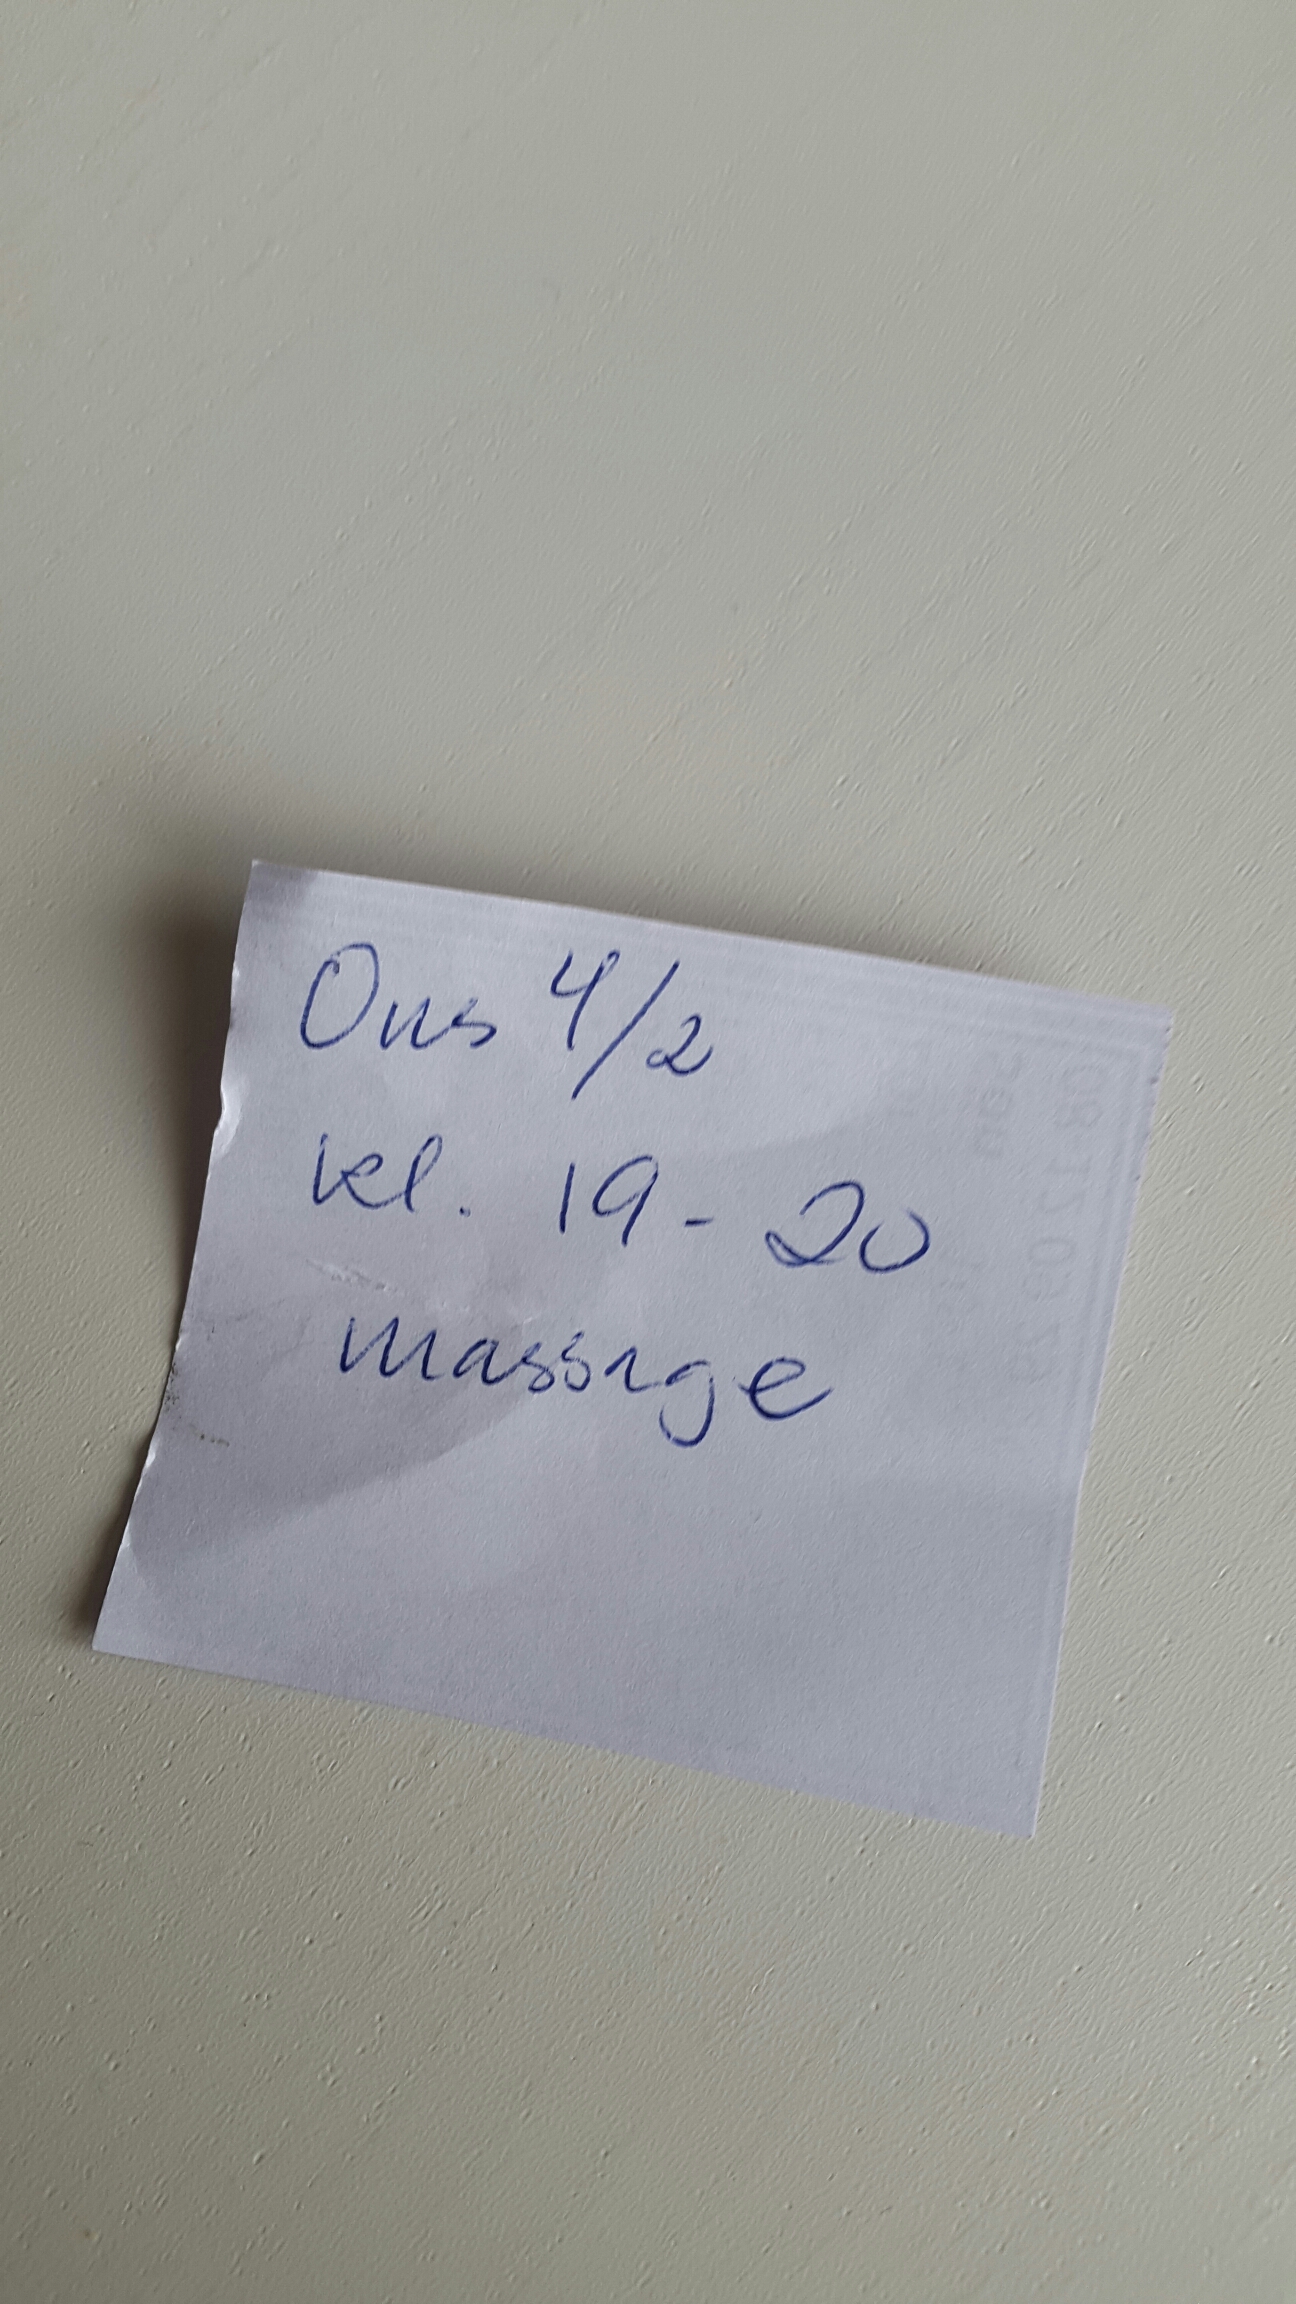 Ons 4/2
kl. 19-20
massage